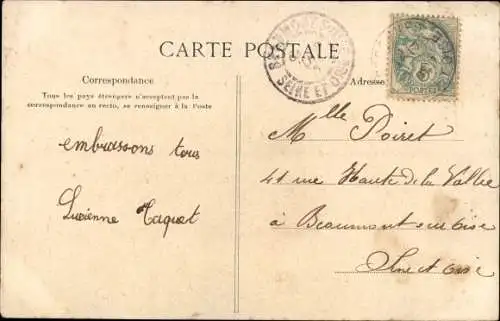 CARTE POSTALE
Correspondance
Tous les pays étrangers n'acceptent pas la
correspondance au recto, se renseigner à la Poste
Adresse
embrassons tous
Lucienne Taquet
Mlle Poiret
41 rue Haute de la Vallée
à Beaumont sur Oise
Seine et Oise
SEINE ET OISE
5
POSTES